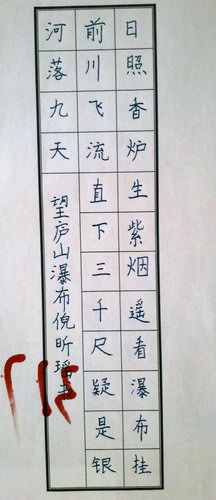 日照香炉生紫烟遥看瀑布挂
前川飞流直下三千尺疑是银
河落九天
望庐山瀑布倪昕瑶书